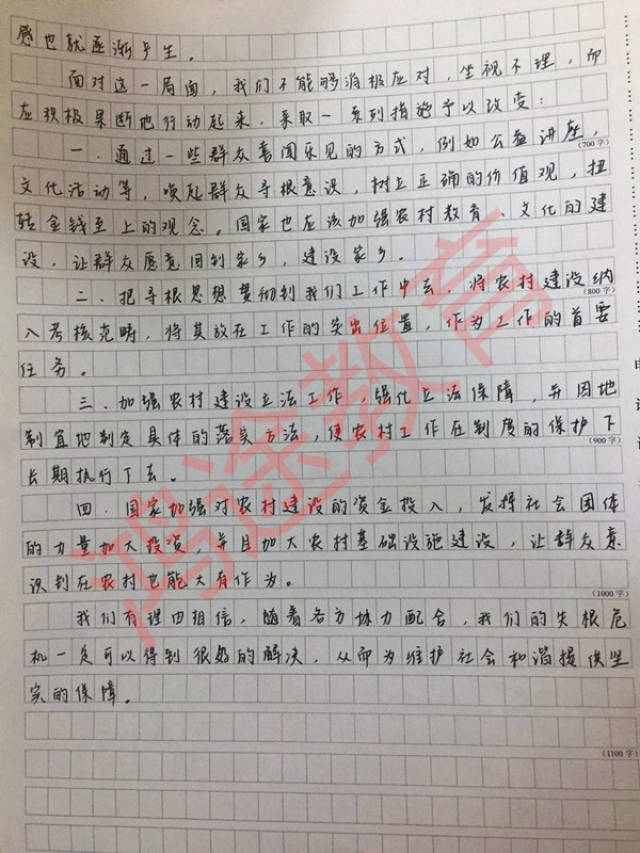 感也就逐渐产生。
面对这一局面，我们不能够消极应对，坐视不理，而
应积极果断地行动起来，采取一系列措施予以改变：
一、通过一些群众喜闻乐见的方式，例如公益讲座，
(700字)
文化活动等，唤起群众寻根意识，树立正确的价值观，扭
转金钱至上的观念。国家也应该加强农村教育、文化的建
设，让群众愿意回到家乡，建设家乡。
二、把寻根思想贯彻到我们工作中去，将农村建设纳
(800字)
入考核范畴，将其放在工作的突出位置，作为工作的首要
任务。
三、加强农村建设立法工作，强化立法保障，并因地
制宜地制定具体的落实方法，使农村工作在制度的保护下
(900字)
长期执行下去。
四、国家加强对农村建设的资金投入，发挥社会团体
的力量加大投资，并且加大农村基础设施建设，让群众意
识到在农村也能大有作为。
(1000字)
我们有理由相信，随着各方协力配合，我们的失根危
机一定可以得到很好的解决，从而为维护社会和谐提供坚
实的保障。
(1100字)
鸿途教育